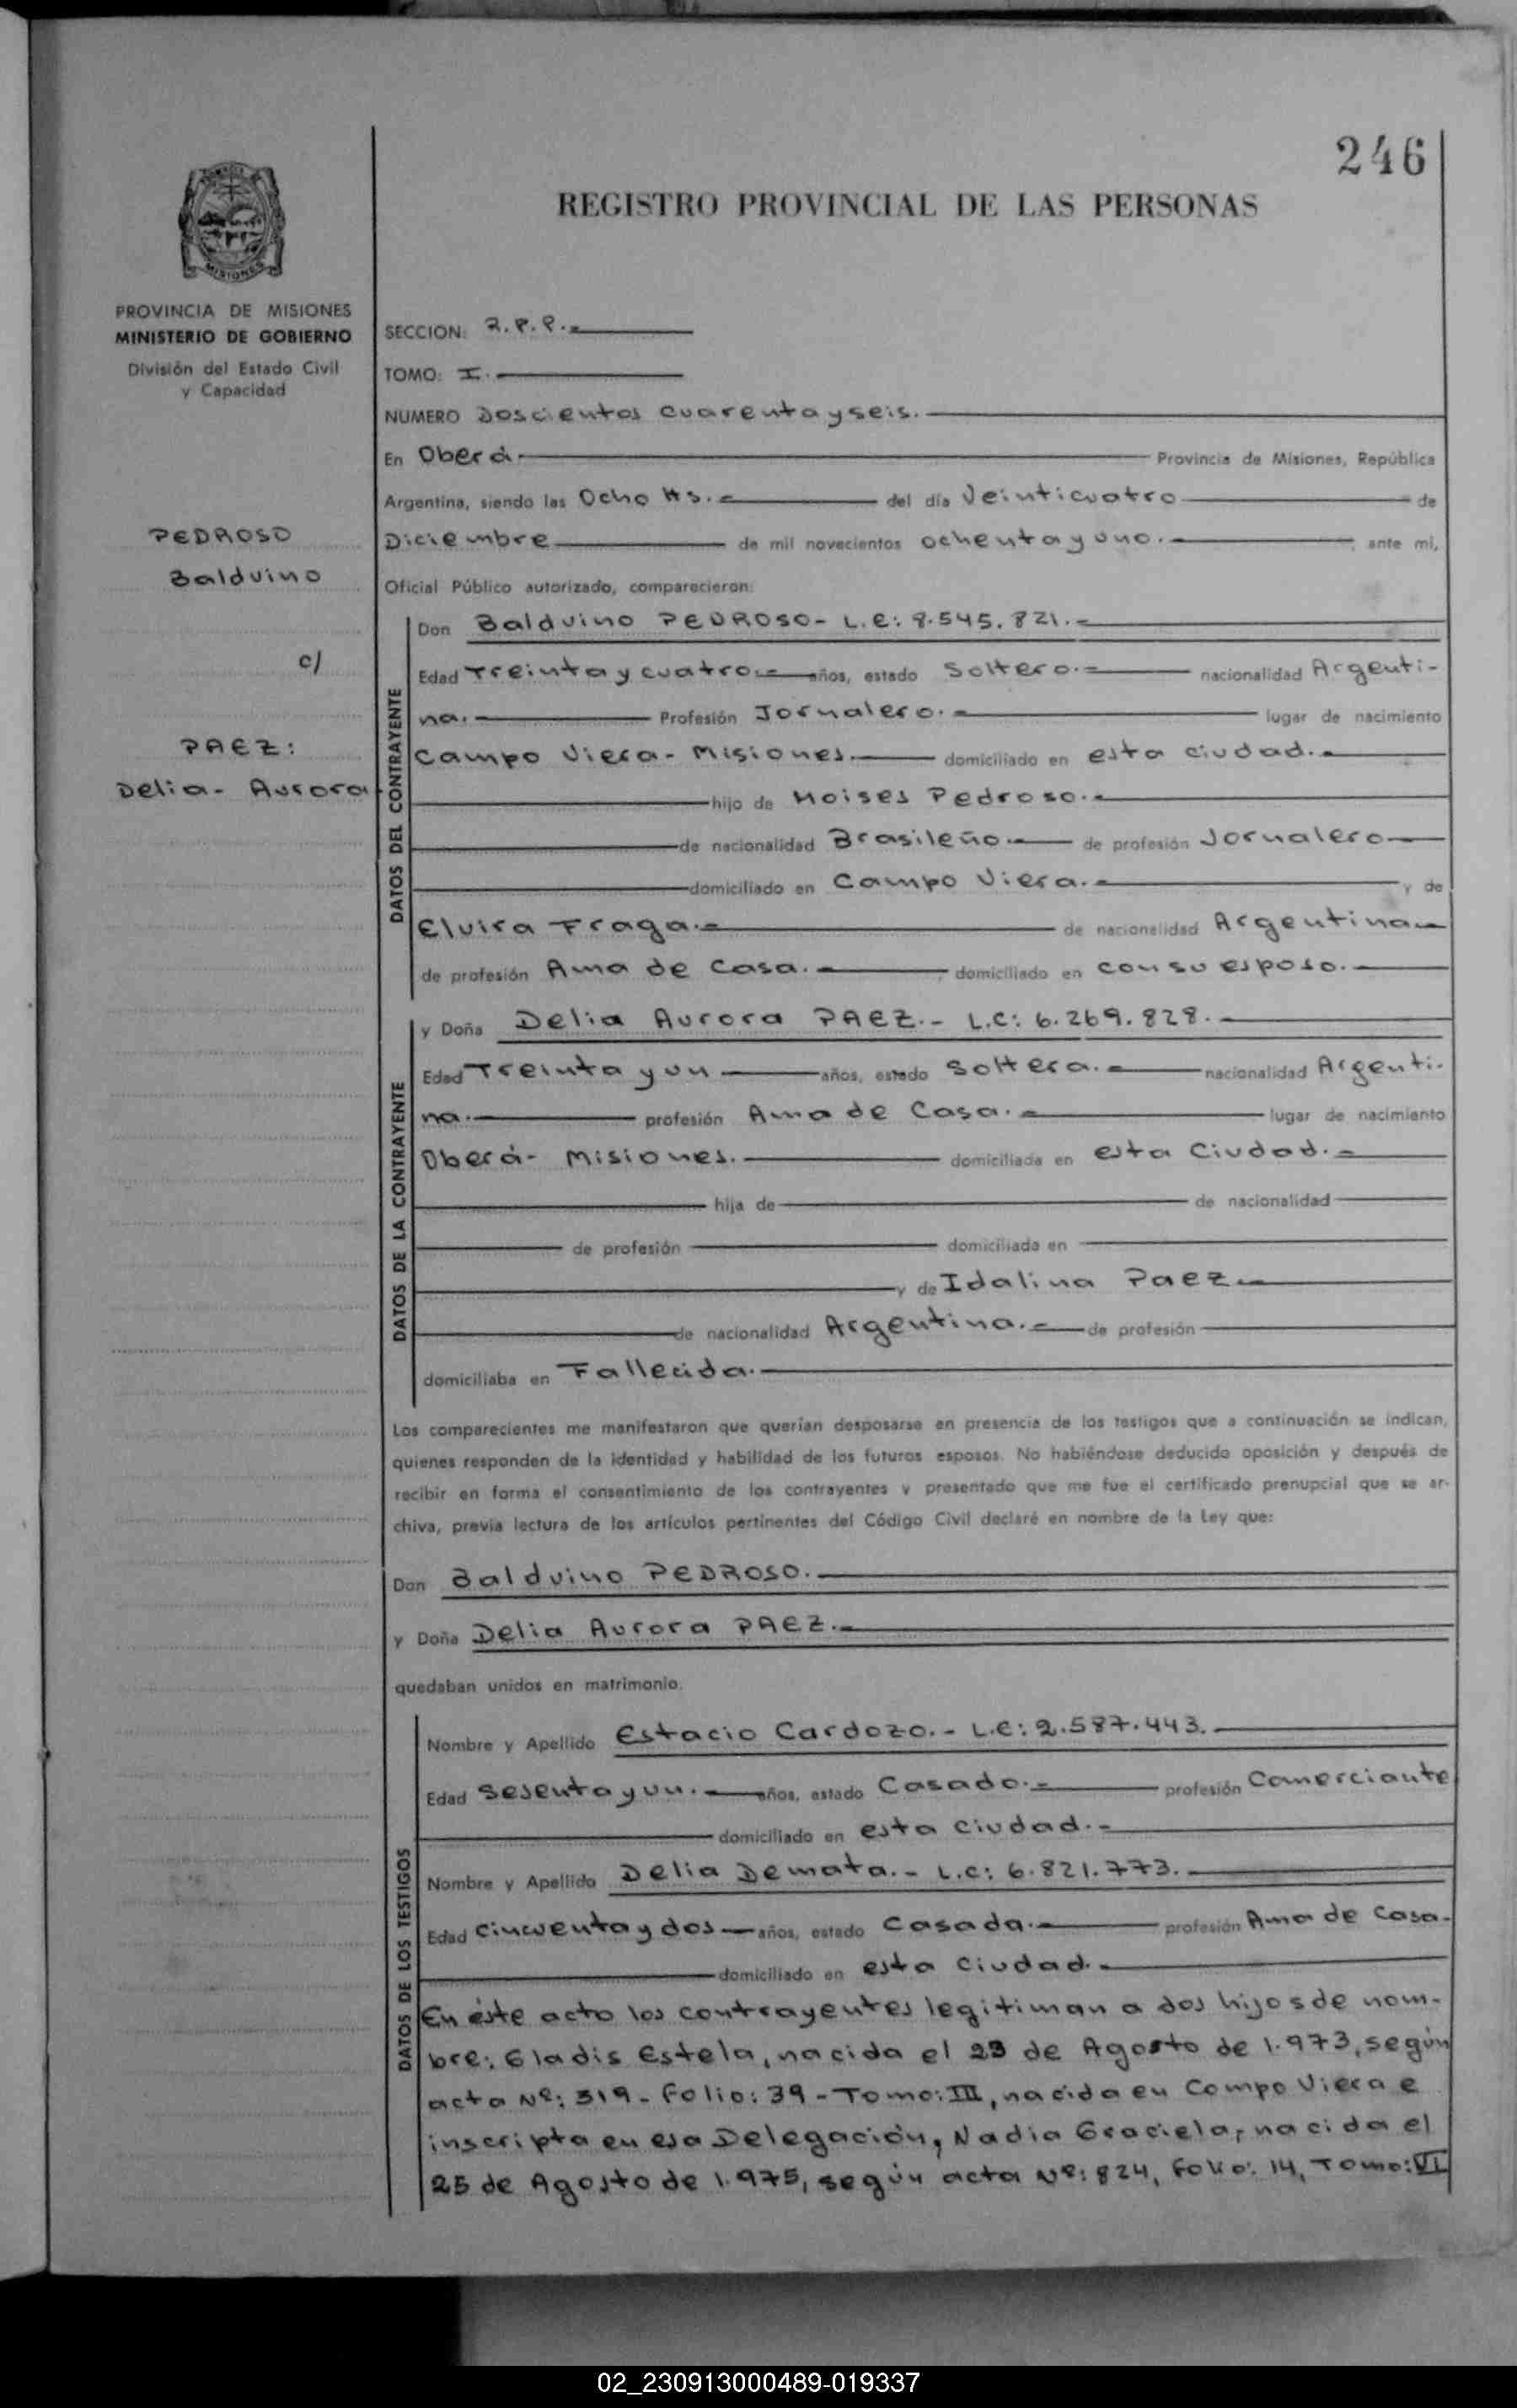 246
REGISTRO PROVINCIAL DE LAS PERSONAS
MISIONES
PROVINCIA DE MISIONES
MINISTERIO DE GOBIERNO
División del Estado Civil
y Capacidad
PEDROSO
Balduino
c/
PAEZ:
Delia- Aurora
SECCION: R.P.P.-
TOMO: I.
NUMERO Doscientos cuarenta y seis.
En Oberá- Provincia de Misiones, República
Argentina, siendo las Ocho Hs.- del día Veinticuatro de
Diciembre de mil novecientos ochenta y uno.- ante mi,
Oficial Público autorizado, comparecieron:
DATOS DEL CONTRAYENTE
Don Balduino PEDROSO- L.E: 8.545.821.-
Edad Treinta y cuatro.- años, estado Soltero.- nacionalidad Argenti-
na.- Profesión Jornalero.- lugar de nacimiento
Campo Viera- Misiones. domiciliado en esta ciudad.-
hijo de Moises Pedroso.-
de nacionalidad Brasileño.- de profesión Jornalero
domiciliado en Campo Viera.- y de
Elvira Fraga.- de nacionalidad Argentina-
de profesión Ama de Casa.- , domiciliado en con su esposo.-
DATOS DE LA CONTRAYENTE
y Doña Delia Aurora PAEZ.- L.C: 6.269.828.-
Edad Treinta y un años, estado Soltera.- nacionalidad Argenti-
na.- profesión Ama de Casa.- lugar de nacimiento
Oberá- Misiones. domiciliada en esta Ciudad.-
hija de de nacionalidad
de profesión domiciliada en
y de Idalina Paez-
de nacionalidad Argentina.- de profesión
domiciliaba en Fallecida.
Los comparecientes me manifestaron que querían desposarse en presencia de los testigos que a continuación se indican,
quienes responden de la identidad y habilidad de los futuros esposos. No habiéndose deducido oposición y después de
recibir en forma el consentimiento de los contrayentes y presentado que me fue el certificado prenupcial que se ar-
chiva, previa lectura de los artículos pertinentes del Código Civil declaré en nombre de la Ley que:
Don Balduino PEDROSO.
y Doña Delia Aurora PAEZ.-
quedaban unidos en matrimonio.
DATOS DE LOS TESTIGOS
Nombre y Apellido Estacio Cardozo.- L.E: 2.587.443.
Edad Sesenta y un.- años, estado Casado.- profesión Comerciante
domiciliado en esta ciudad.-
Nombre y Apellido Delia Demata.- L.C: 6.821.773.
Edad Cincuenta y dos años, estado Casada.- profesión Ama de Casa.
domiciliado en esta ciudad.-
En éste acto los contrayentes legitiman a dos hijos de nom-
bre: Gladis Estela, nacida el 23 de Agosto de 1.973, según
acta Nº: 319- Folio: 39- Tomo: III, nacida en Campo Viera e
inscripta en esa Delegación, Nadia Graciela, nacida el
25 de Agosto de 1.975, según acta Nº: 824, Folio: 14, Tomo: VI
02_230913000489-019337